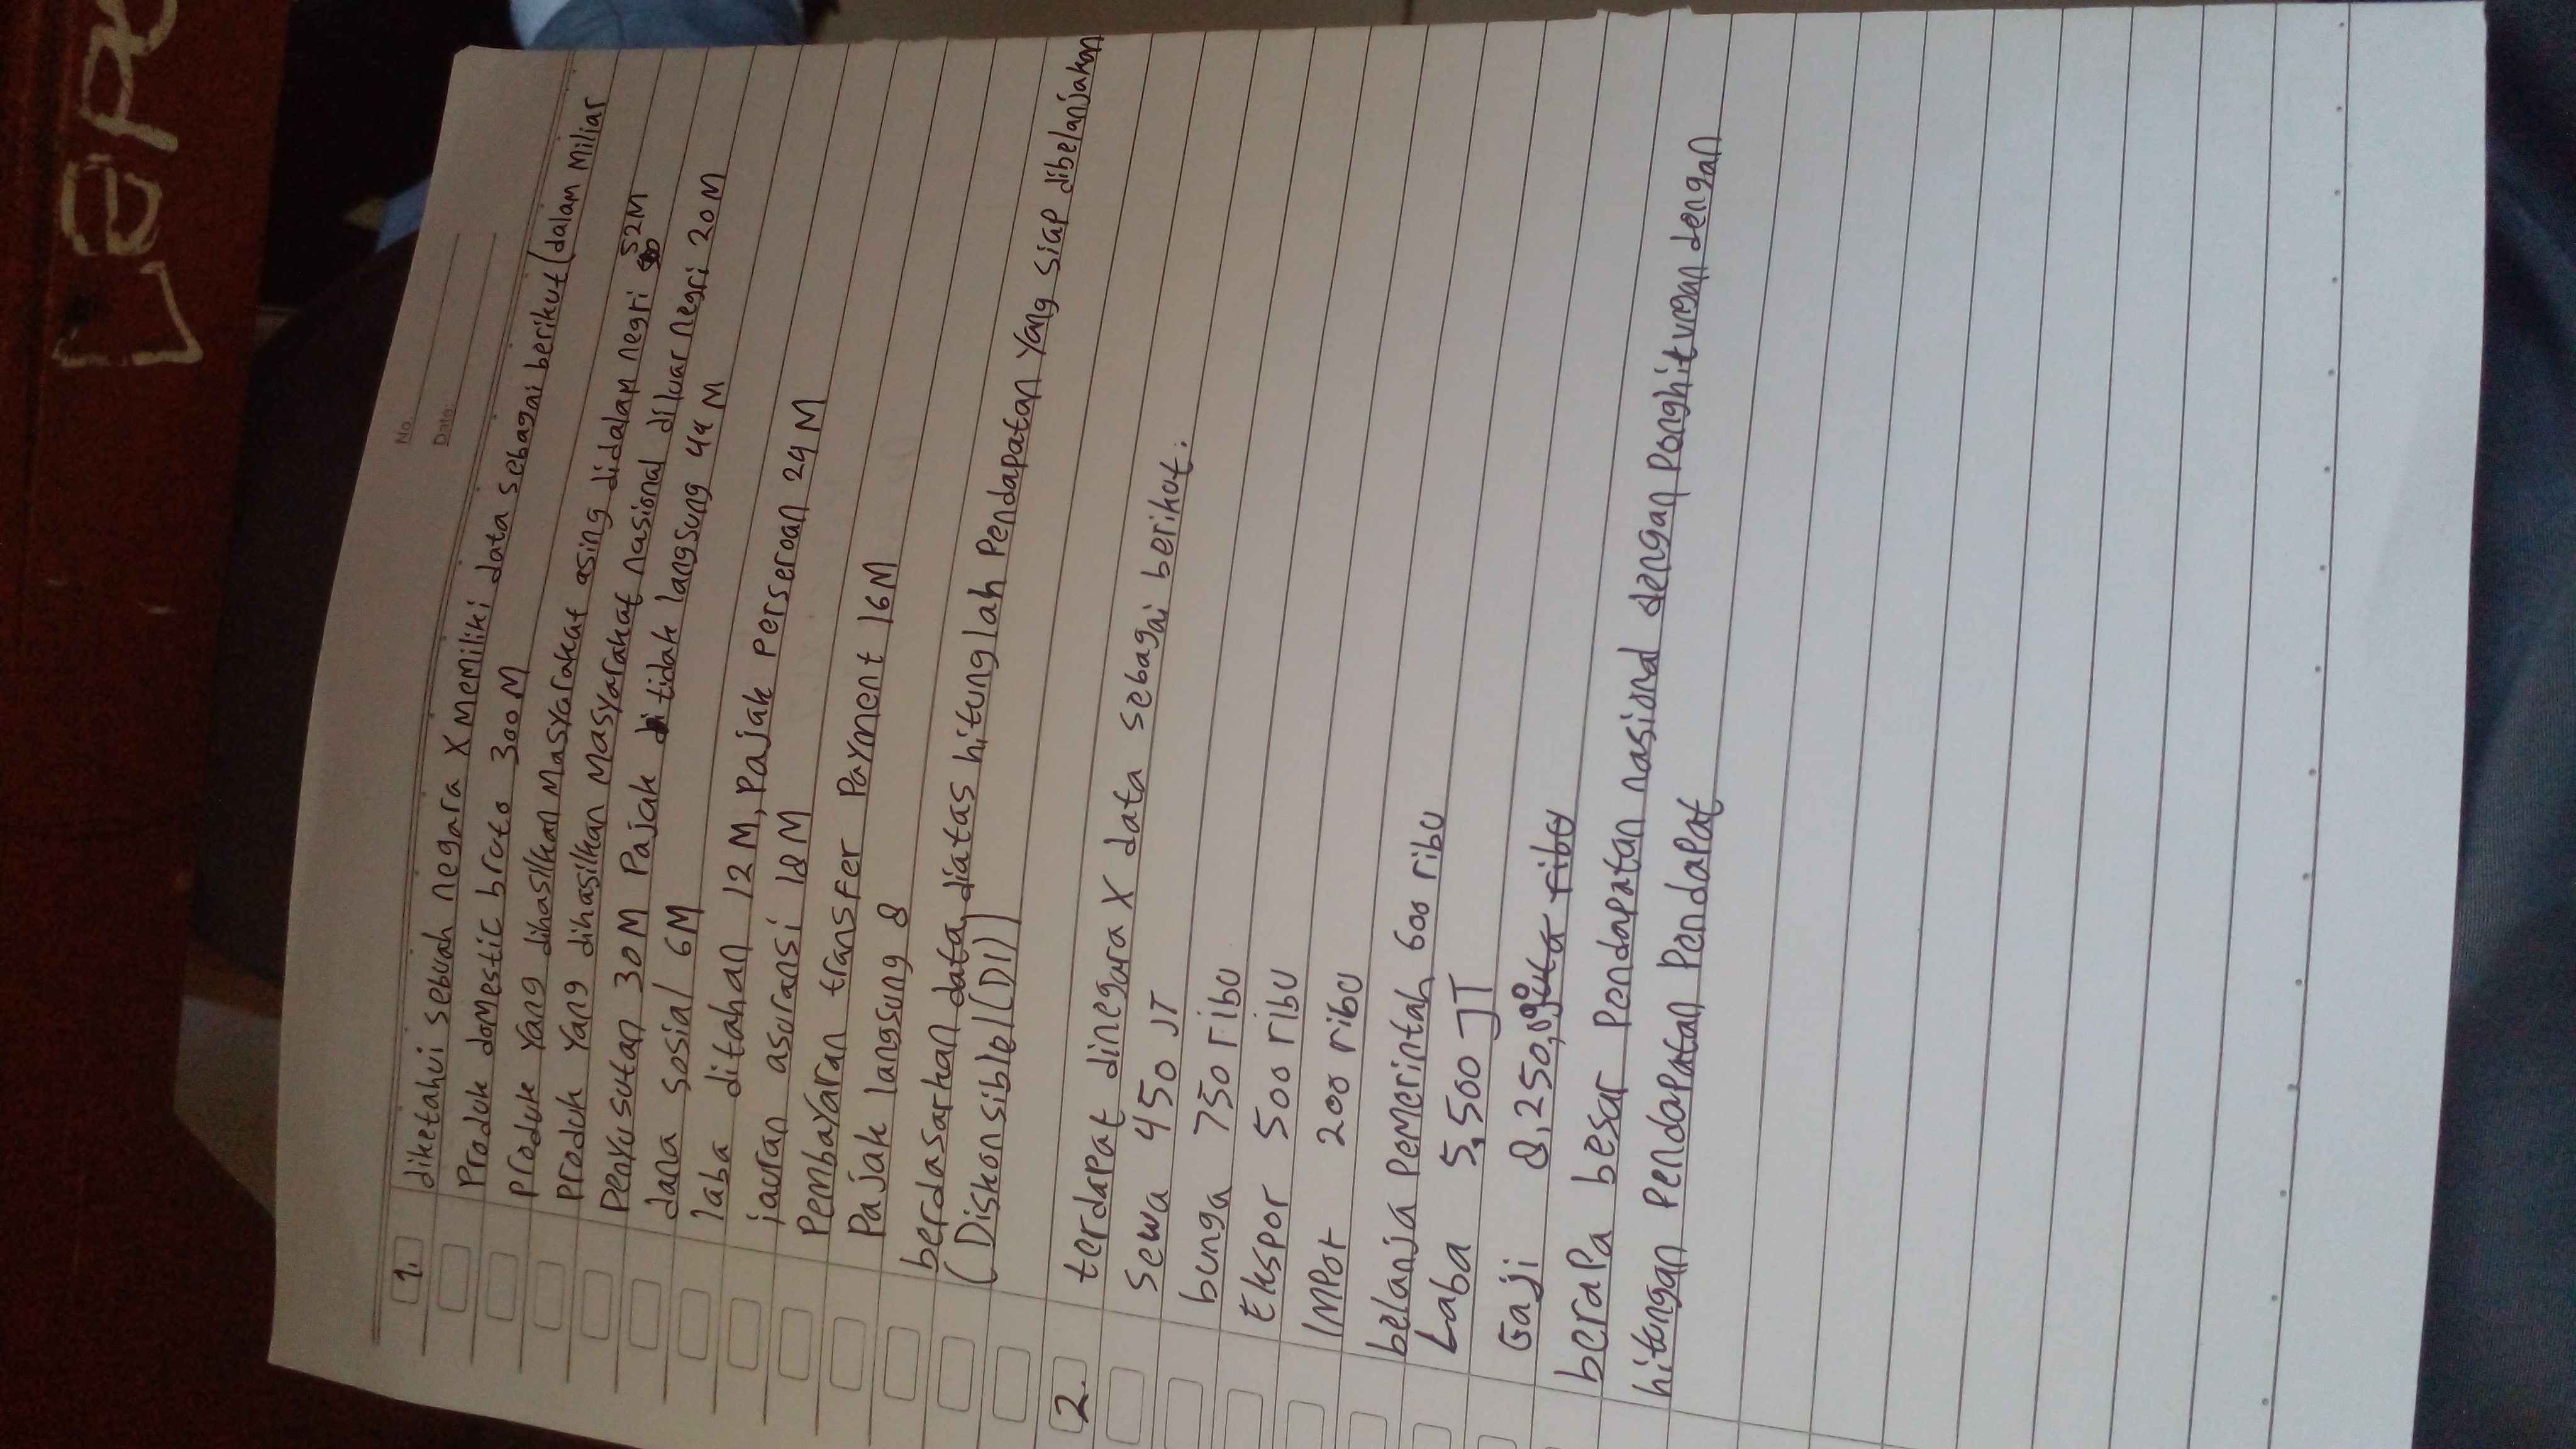 LEPO
No.
Date:
1. diketahui sebuah negara X memiliki data sebagai berikut (dalam Miliar
Produk domestic bruto 300 M
Produk Yang dihasilkan Masyarakat asing didalam negri 52M
Produk Yang dihasilkan Masyarakat nasional diluar negri 20M
Penyusutan 30M Pajak tidak langsung 44 M
dana sosial 6M
laba ditahan 12 M, Pajak Perseroan 24 M
iauran asuransi 18 M
Pembayaran transfer Payment 16M
Pajak langsung 8
berdasarkan data diatas hitunglah Pendapatan Yang siap dibelanjakan
(Diskonsible1(DI))
2. terdapat dinegara X data sebagai berikut:
Sewa 450 JT
bunga 750 ribu
Ekspor 500 ribu
IMPor 200 ribu
belanja Pemerintah 600 ribu
Laba 5,500 JT
Gaji 8,250,000 ribu
berapa besar Pendapatan nasional dengan Penghitungan dengan
hitungan Pendapatan Pendapat